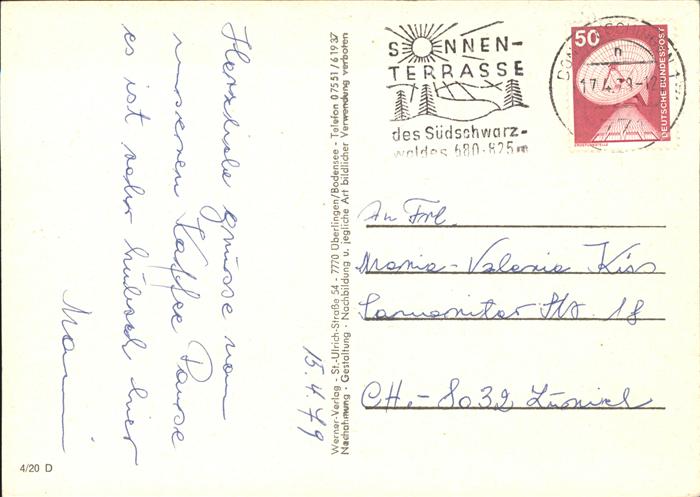 Herzliche Grüsse von
unserem Kaffee Pause
es ist sehr hübsch hier
15.4.79
Werner-Verlag - St.-Ulrich-Straße 54 - 7770 Überlingen/Bodensee - Telefon 07551/61937
Nachahmung · Gestaltung · Nachbildung u. jegliche Art bildlicher Verwendung verboten
4/20 D
SONNEN-
TERRASSE
des Südschwarz-
waldes 680-825 m
17.4.79-12
50
DEUTSCHE BUNDESPOST
An Frl.
Maria-Valeria Kiss
Samariter Str. 18
CH.-8032 Zürich